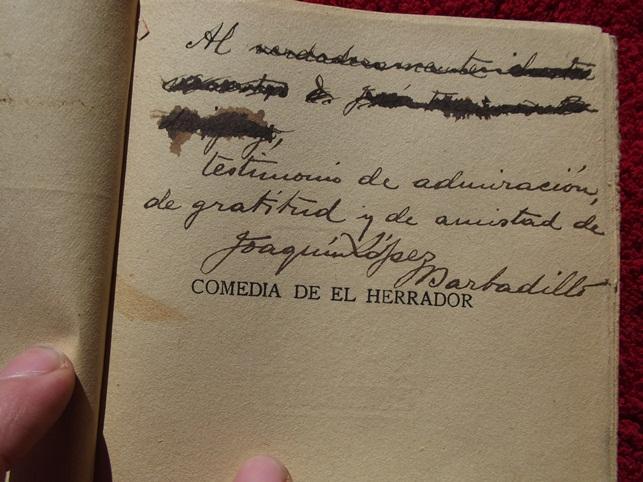 Al verdaderamente ilustre
maestro D. José
testimonio de admiración,
de gratitud y de amistad de
Joaquín López
Barbadillo
COMEDIA DE EL HERRADOR